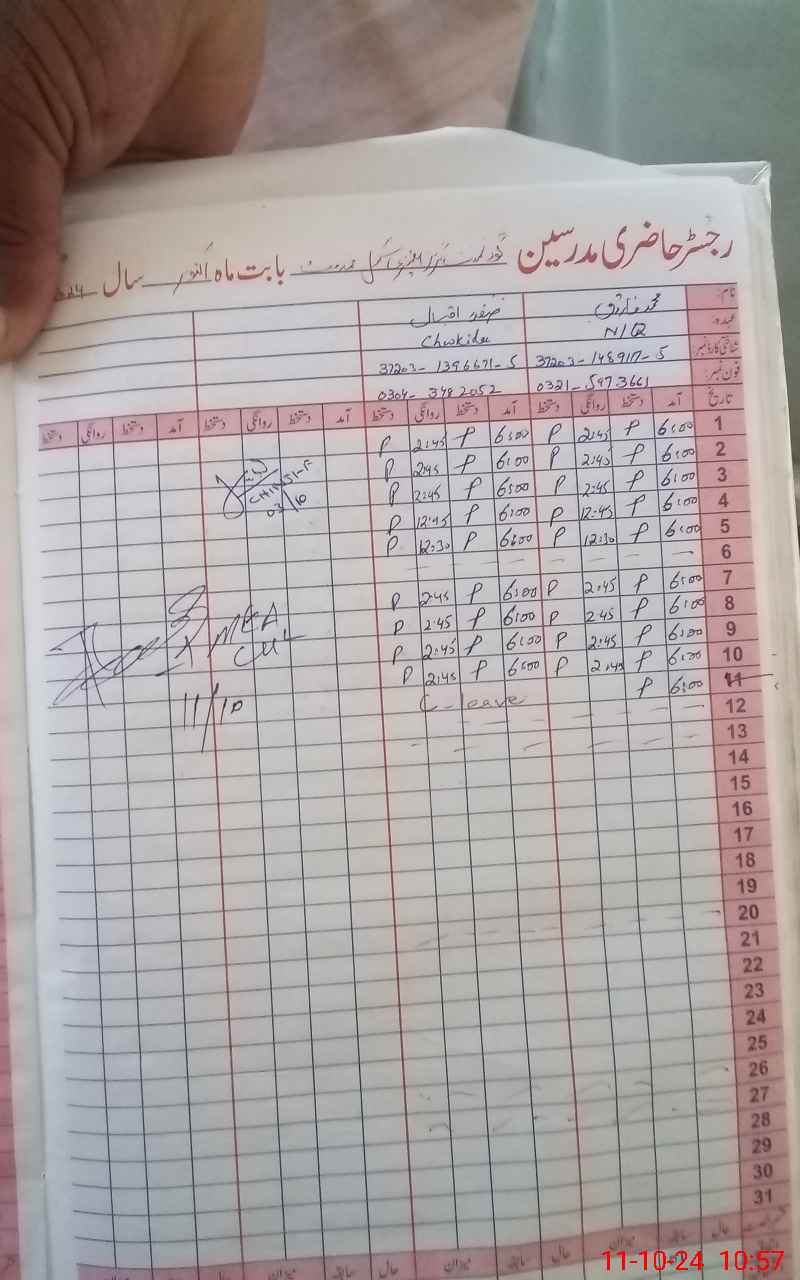 رجسٹر حاضری مدرسین بابت ماہ اکتوبر سال
نام: محمد فاروق صفدر اقبال
عہدہ N/Q Chokidar
شناختی کارڈ نمبر 37203-148917-5 37203-1396671-5
فون نمبر: 0321-5973661 0304-3482052
تاریخ آمد دستخط روانگی دستخط آمد دستخط روانگی دستخط آمد دستخط روانگی دستخط آمد دستخط روانگی دستخط
1 6:00 P 2:45 P 6:00 P 2:45 P
2 6:00 P 2:45 P 6:00 P 2:45 P
3 6:00 P 2:45 P 6:00 P 2:45 P
4 6:00 P 12:45 P 6:00 P 12:45 P
5 6:00 P 12:30 P 6:00 P 12:30 P
6
7 6:00 P 2:45 P 6:00 P 2:45 P
8 6:00 P 2:45 P 6:00 P 2:45 P
9 6:00 P 2:45 P 6:00 P 2:45 P
10 6:00 P 2:45 P 6:00 P 2:45 P
11 6:00 P C-leave
12
13
14
15
16
17
18
19
20
21
22
23
24
25
26
27
28
29
30
31
03/10
MEA
11/10
حال سابقہ میزان حال سابقہ میزان حال سابقہ میزان حال
11-10-24 10:57